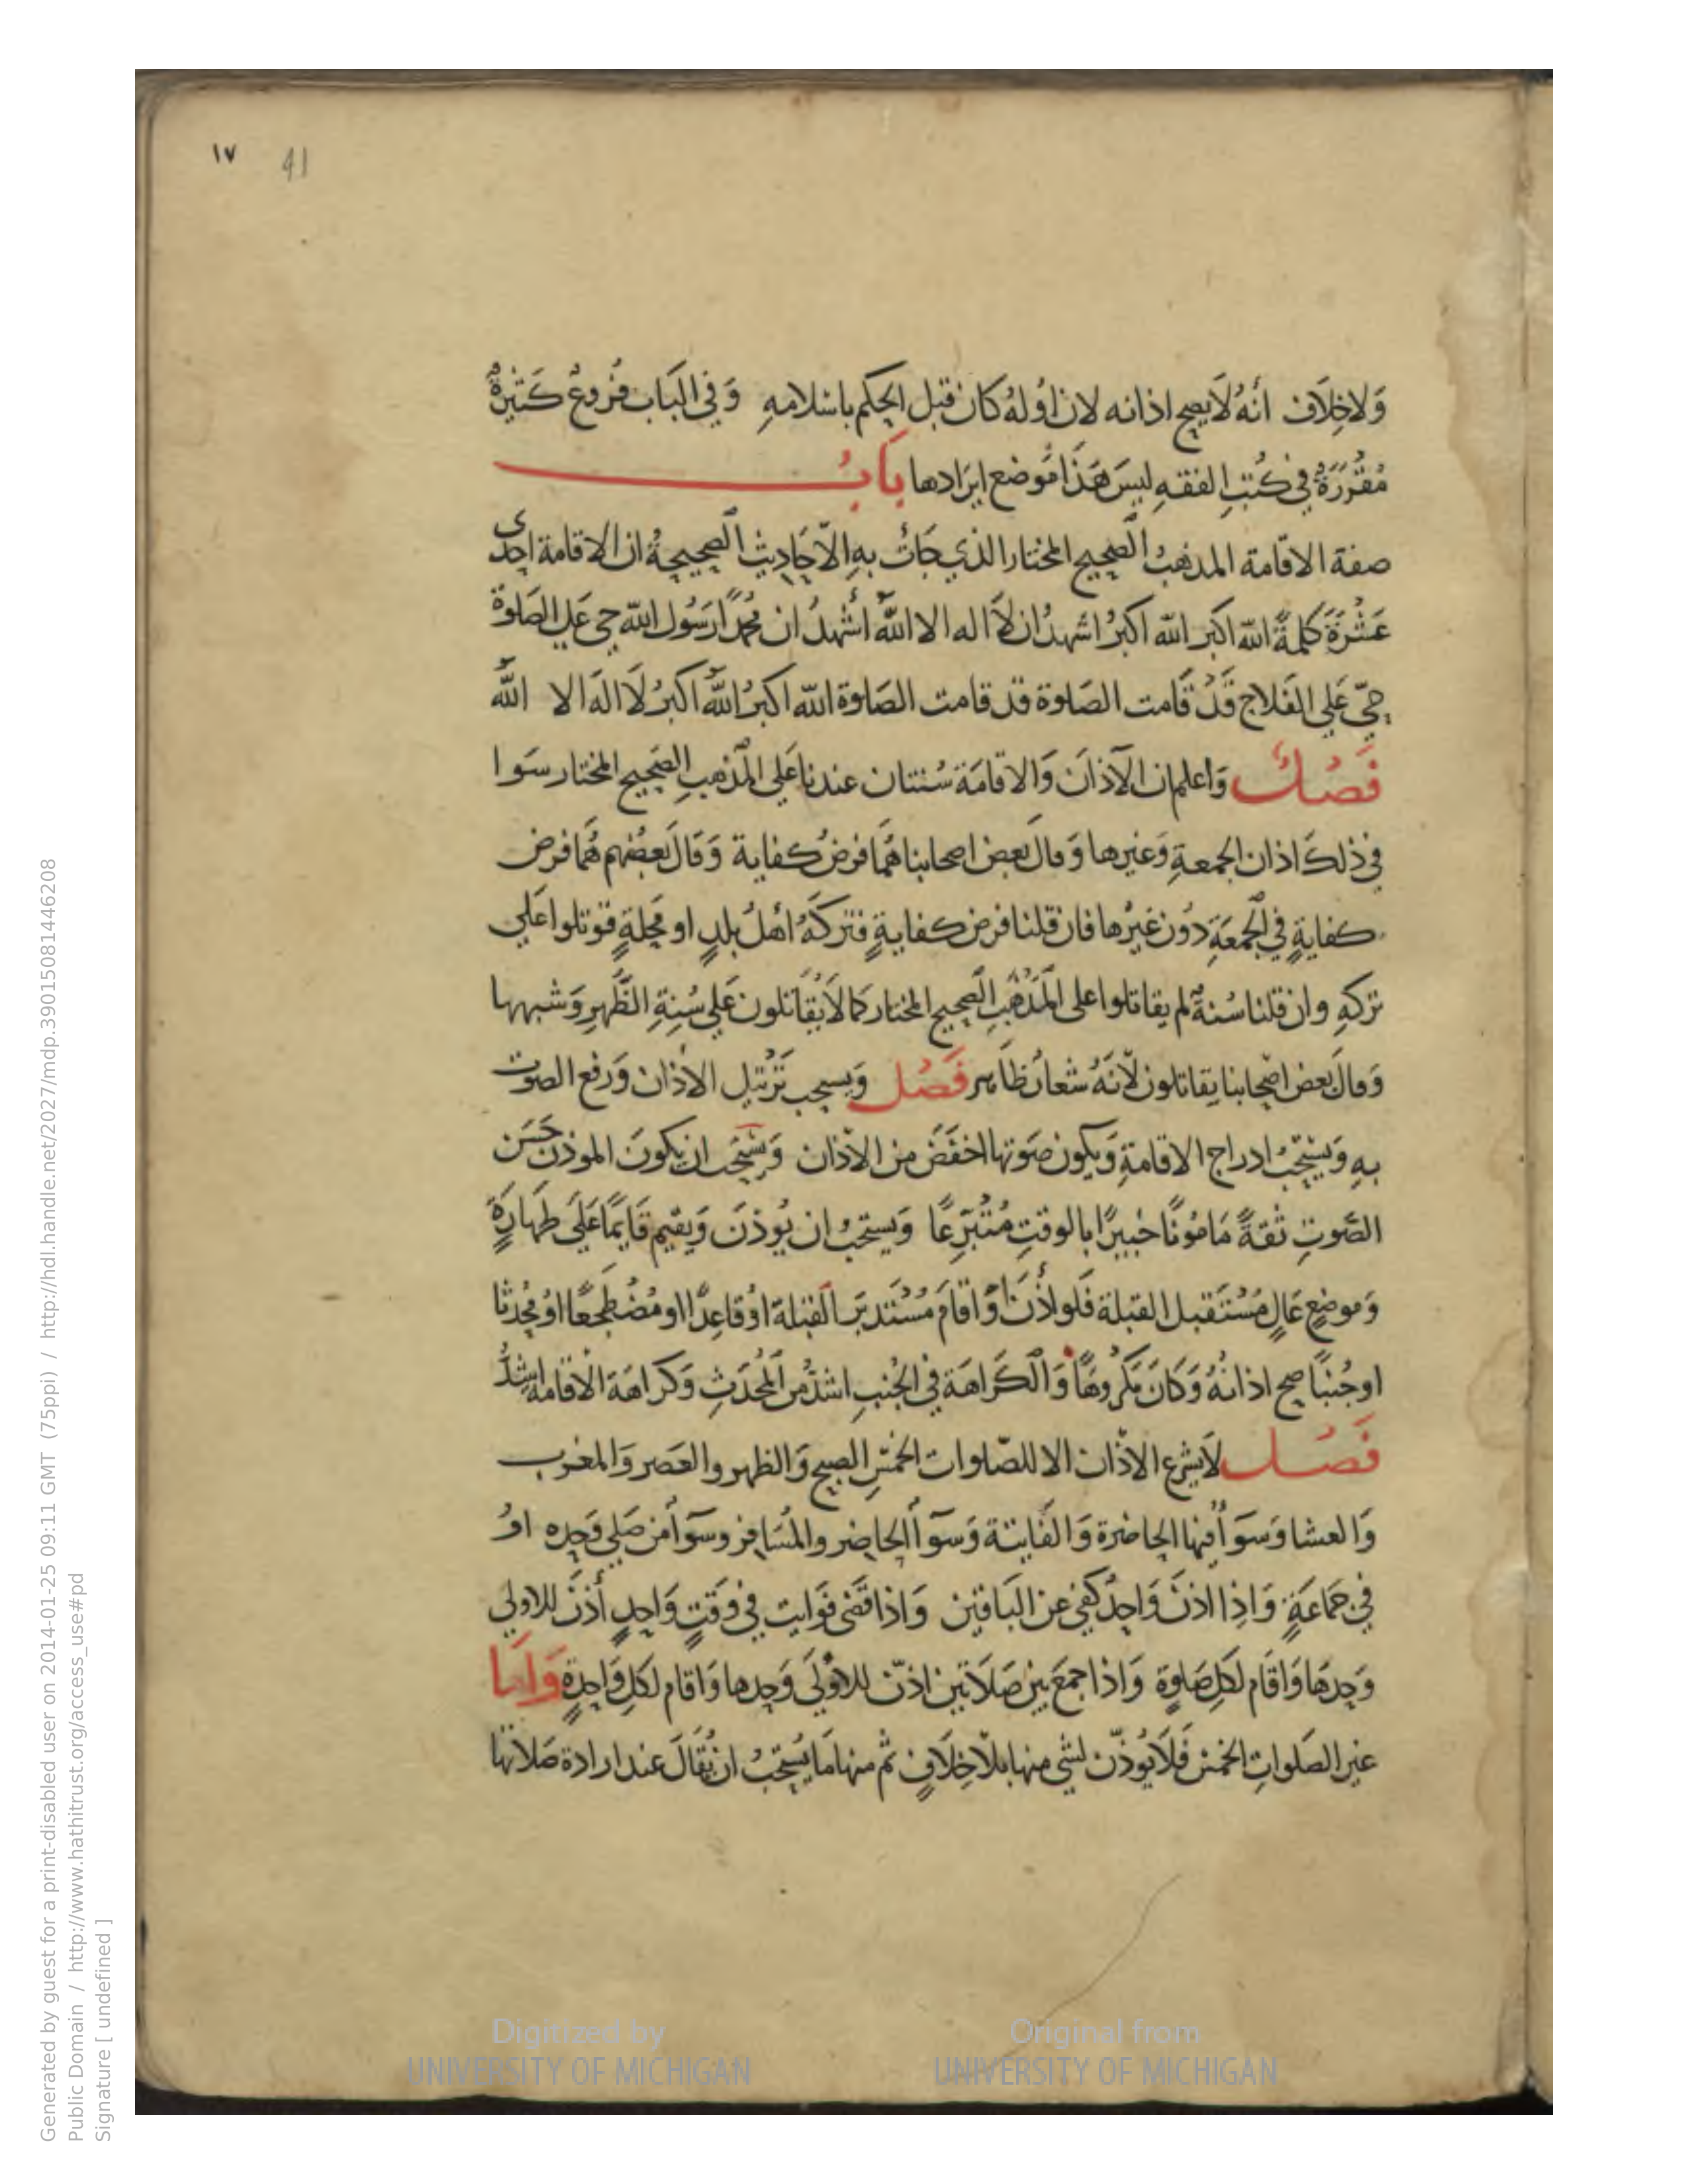 ١٧ 41
وَلاخِلَافَ أنَّهُ لَايصح اذانه لان أوُلهُ كان قبل الحكم باسْلامهِ وَفي البَاب فُروعٌ كَثيرةٌ
مُقَرَّرَةٌ في كُتبِ الفقهِ ليسَ هَذَا مَوضع ايرَادها بَابُ
صفة الاقامة المذهبُ الصحيح المختار الذي جَاتْ بهِ الأحَاديث الصحيحةُ ان الاقامة احدى
عَشْرَةَ كلمةً الله اكبر الله اكبرُ اشهدُ ان لَا اله الا اللهُ اشْهدُ ان محمدًا رَسُول الله حي عَلى الصَلوة
حيّ عَلي الفَلاح قَدْ قَامت الصَلوة قد قامت الصَلوة الله اكبرُ اللهُ اكبرُ لَا الهَ الا اللهُ
فَصْلٌ وَاعلم ان الآذانَ وَالاقامَة سُنتان عندنا عَلي المَذهبِ الصَحيح المختار سَوا
في ذلكَ اذان الجمعةِ وَغيرها وَقال بَعض اصحابنا هُمَا فرضُ كفاية وَقالَ بَعضُهم هُمَا فرض
كفايةٍ في الجمعَةِ دُون غَيْرها فان قلنا فرض كفايةٍ فتركَهُ اهلُ بلدٍ او محلةٍ قوتلوا عَلي
تركهِ وان قلنا سُنةٌ لم يقاتلوا على المَذهَبِ الصحيح المختار كما لَا يُقَاتلون عَلي سُنةِ الظُّهرِ وَشبهها
وَقالَ بَعض اصْحابنا يقاتلون لأنَّهُ شعارٌ ظَاهر فَصْل وَيستحب تَرْتيل الاذان وَرَفع الصوت
بهِ وَيستحبُ ادراج الاقامةِ وَيكون صَوتها اخفَضَ من الاذان وَيستحب ان يكونَ الموذن حَسَن
الصَّوتِ ثقةً مَامُونًا خبيرًا بالوقتِ مُتَبرِّعًا وَيستحبُ ان يُوذنَ وَيقيم قَايمًا عَلَى طهَارَةٍ
وَموضعٍ عَالٍ مُسْتَقبل القبلة فَلو أذَّنَ أوْ اقامَ مُسْتَدبرَ القبلة اوْ قاعِدًا او مُضْطجعًا اوْ مُحْدثا
اوجُنبًا صح اذانهُ وَكانَ مَكرُوهًا وَالكَرَاهَة في الجُنبِ اشدُّ من المُحْدَثِ وَكَراهَة الاقامة اشدُّ
فَصْل لَا يشرع الاذان الا للصَّلوات الخمسِ الصبح وَالظهر والعَصر وَالمغرب
وَالعشا وَسَوأ فيها الحاضرة وَالفَايتة وَسوأ الحاضر والمُسَافر وسوأ من صَلي وَحده اوْ
في جَمَاعَةٍ وَاذِا اذنَ وَاحدٌ كفي عن البَاقين وَاذا قضى فوَايت في وَقتٍ وَاحدٍ أذنَ للاولي
وَحدهَا وَاقَام لكلِ صَلوةٍ وَاذا جمعَ بين صَلَاتين اذّن للاوْلَى وَحدها وَاقام لكلِ وَاحدةٍ وَامَا
غير الصَلواتِ الخمس فَلَا يُوذّن لشي منها بلا خِلَافٍ ثم منها مَا يُستحَبُ ان يُقَالَ عند ارادة صَلاتها
Digitized by
UNIVERSITY OF MICHIGAN
Original from
UNIVERSITY OF MICHIGAN
Generated by guest for a print-disabled user on 2014-01-25 09:11 GMT (75ppi) / http://hdl.handle.net/2027/mdp.39015081446208
Public Domain / http://www.hathitrust.org/access_use#pd
Signature [ undefined ]